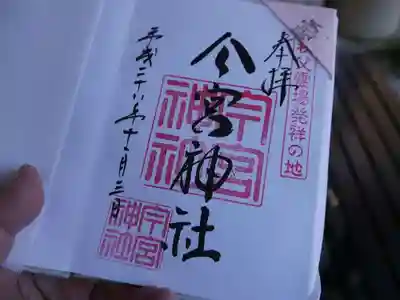 奉拝
秩父霊場発祥の地
今宮神社
今宮神社
平成二十八年十二月三日
今宮神社